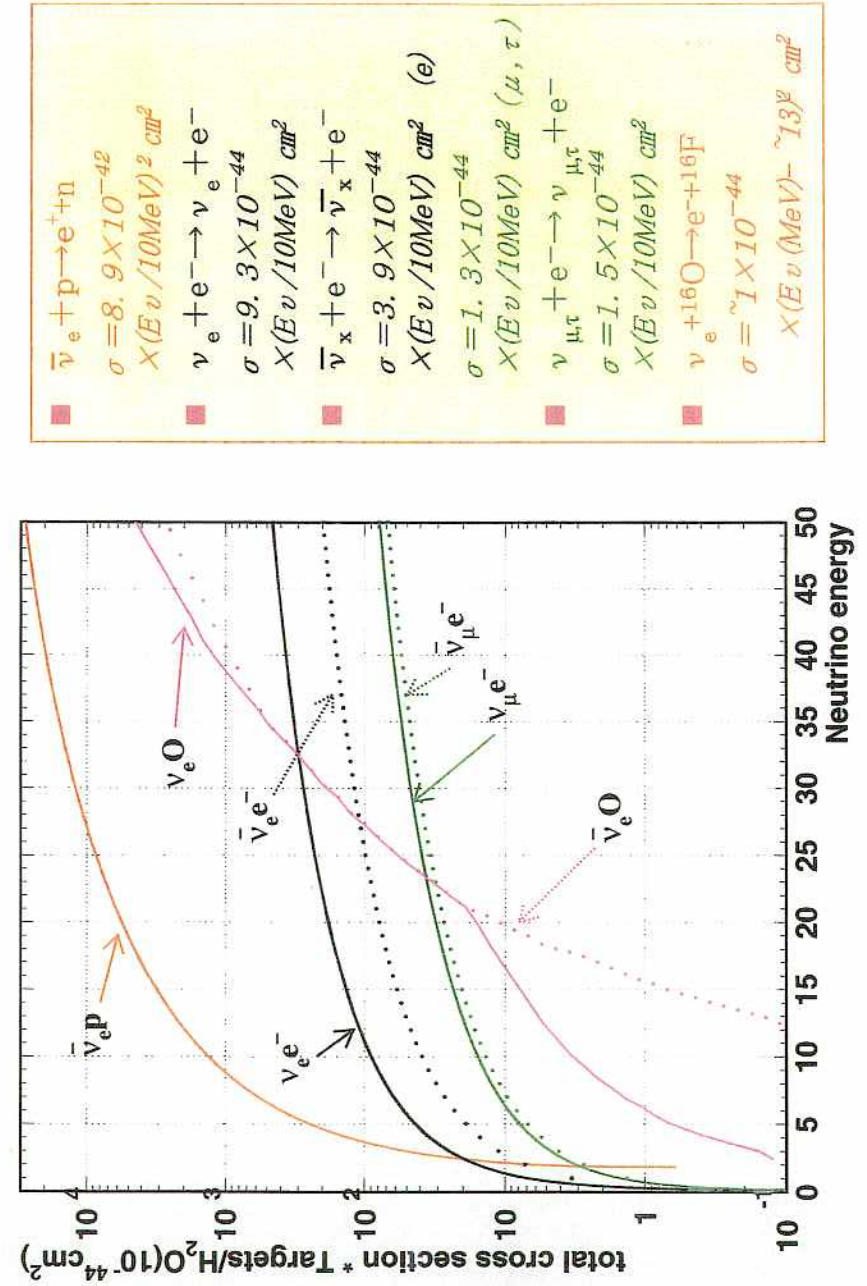 total cross section * Targets/H₂O(10⁻⁴⁴cm²)
10⁴
10³
10²
10
1
10⁻¹
0 5 10 15 20 25 30 35 40 45 50
Neutrino energy
ν̄ₑp
νₑO
νₑe⁻
ν̄ₑe⁻
ν̄μe⁻
νμe⁻
ν̄ₑO
ν̄ₑ+p→e⁺+n
σ=8.9×10⁻⁴²
×(Eν/10MeV)² cm²
νₑ+e⁻→νₑ+e⁻
σ=9.3×10⁻⁴⁴
×(Eν/10MeV) cm²
ν̄ₓ+e⁻→ν̄ₓ+e⁻
σ=3.9×10⁻⁴⁴
×(Eν/10MeV) cm² (e)
σ=1.3×10⁻⁴⁴
×(Eν/10MeV) cm² (μ,τ)
νμ,τ+e⁻→νμ,τ+e⁻
σ=1.5×10⁻⁴⁴
×(Eν/10MeV) cm²
νₑ+¹⁶O→e⁻+¹⁶F
σ=~1×10⁻⁴⁴
×(Eν(MeV)-~13)² cm²